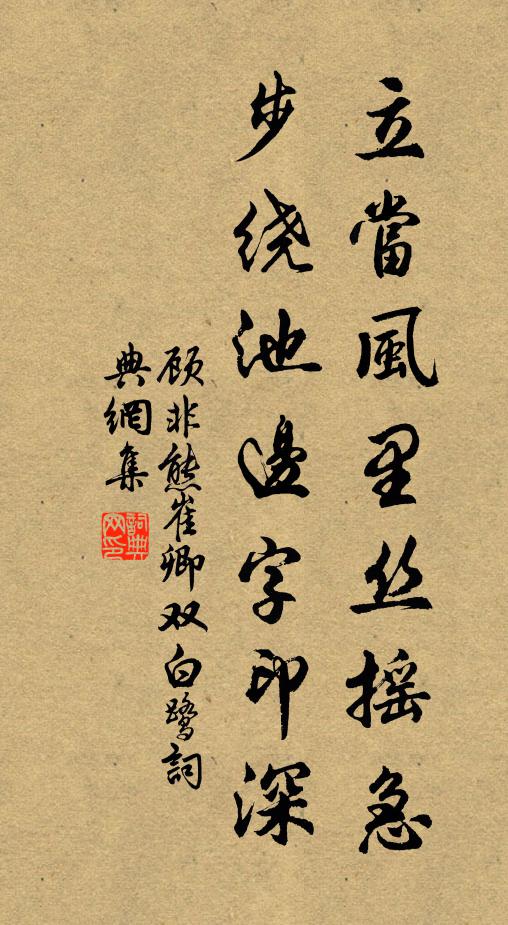 立當風里丝摇急
步绕池邊字印深
顾非熊崔卿双白鹭詞
典網集
詞典
网印